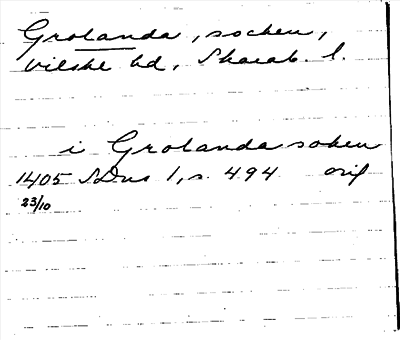 Grolanda, socken,
Vilske hd, Skarab. l.
i Grolanda soken
1405 SDns 1, s. 494 orig
23/10